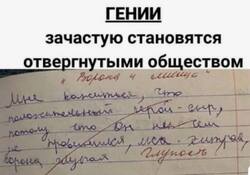 ГЕНИИ
зачастую становятся
отвергнутыми обществом
"Ворона и лисица"
Мне кажеться, что
положительный герой-сыр,
потому что он не чем
не провинился, лиса-хитрая,
ворона глупая Глупость